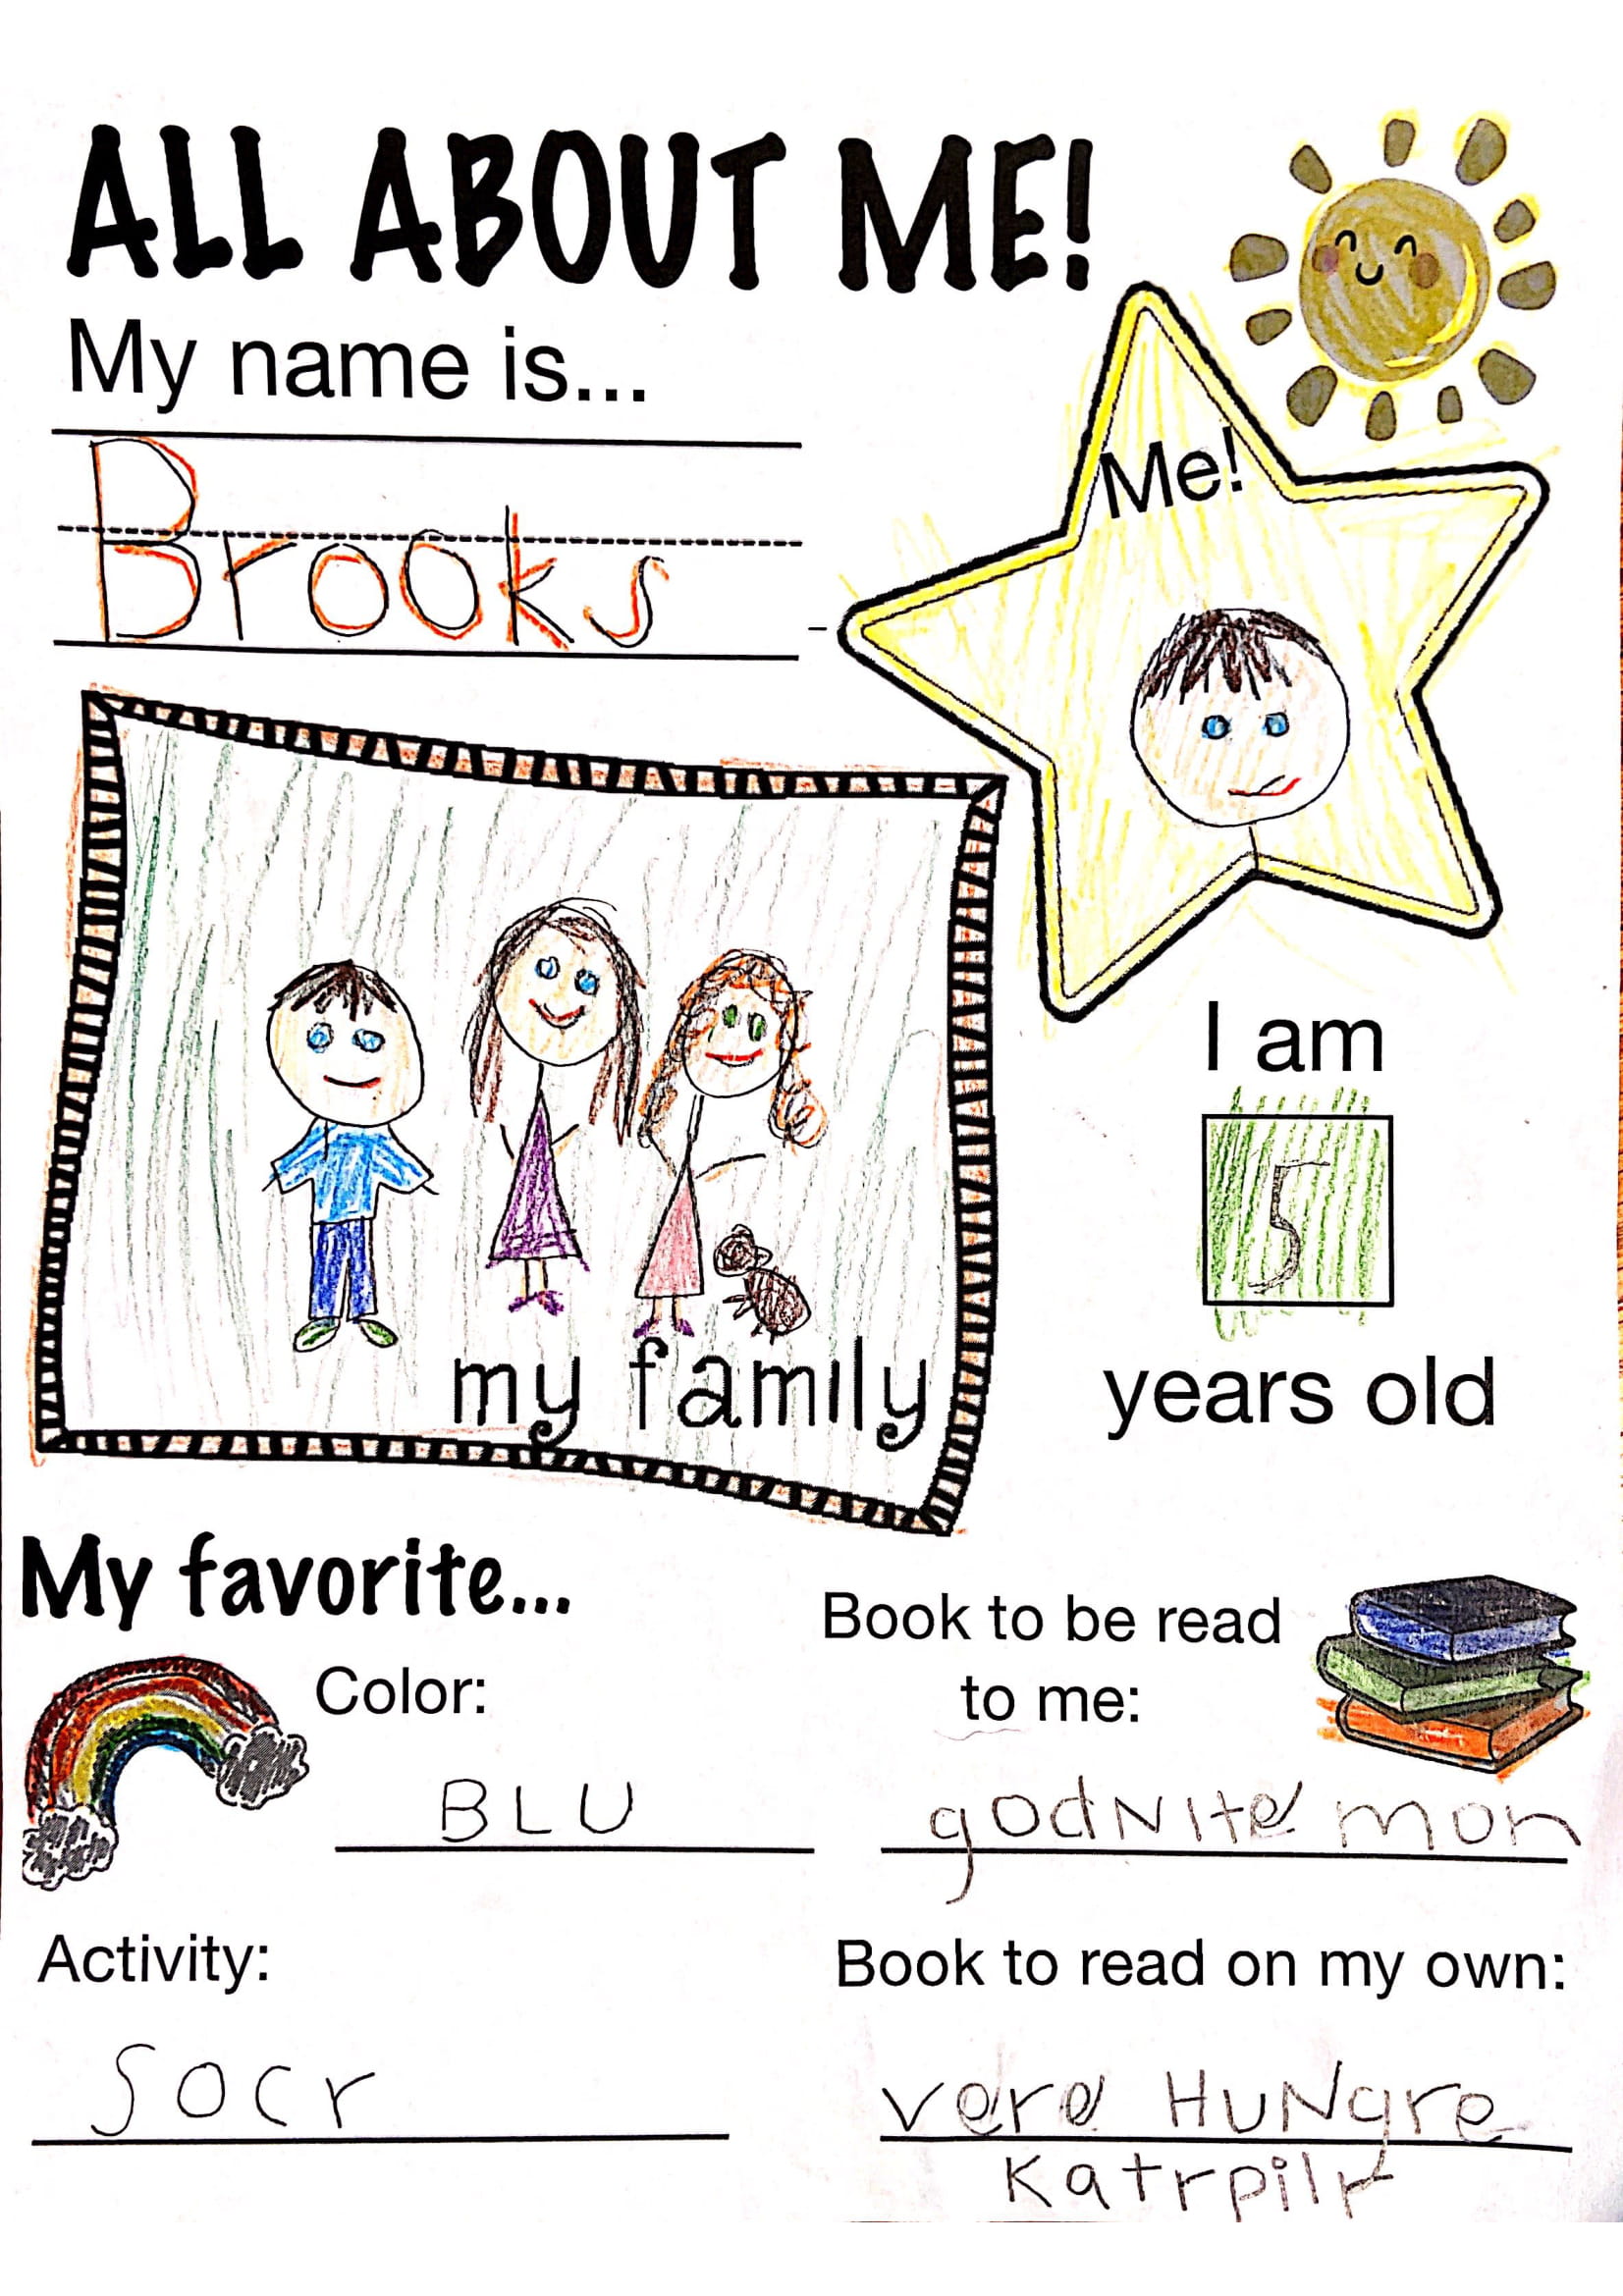 ALL ABOUT ME!
My name is...
Brooks
Me!
my family
I am
5
years old
My favorite...
Color:
BLU
Book to be read
to me:
godNite mon
Activity:
Socr
Book to read on my own:
vere HuNgre
Katrpilr